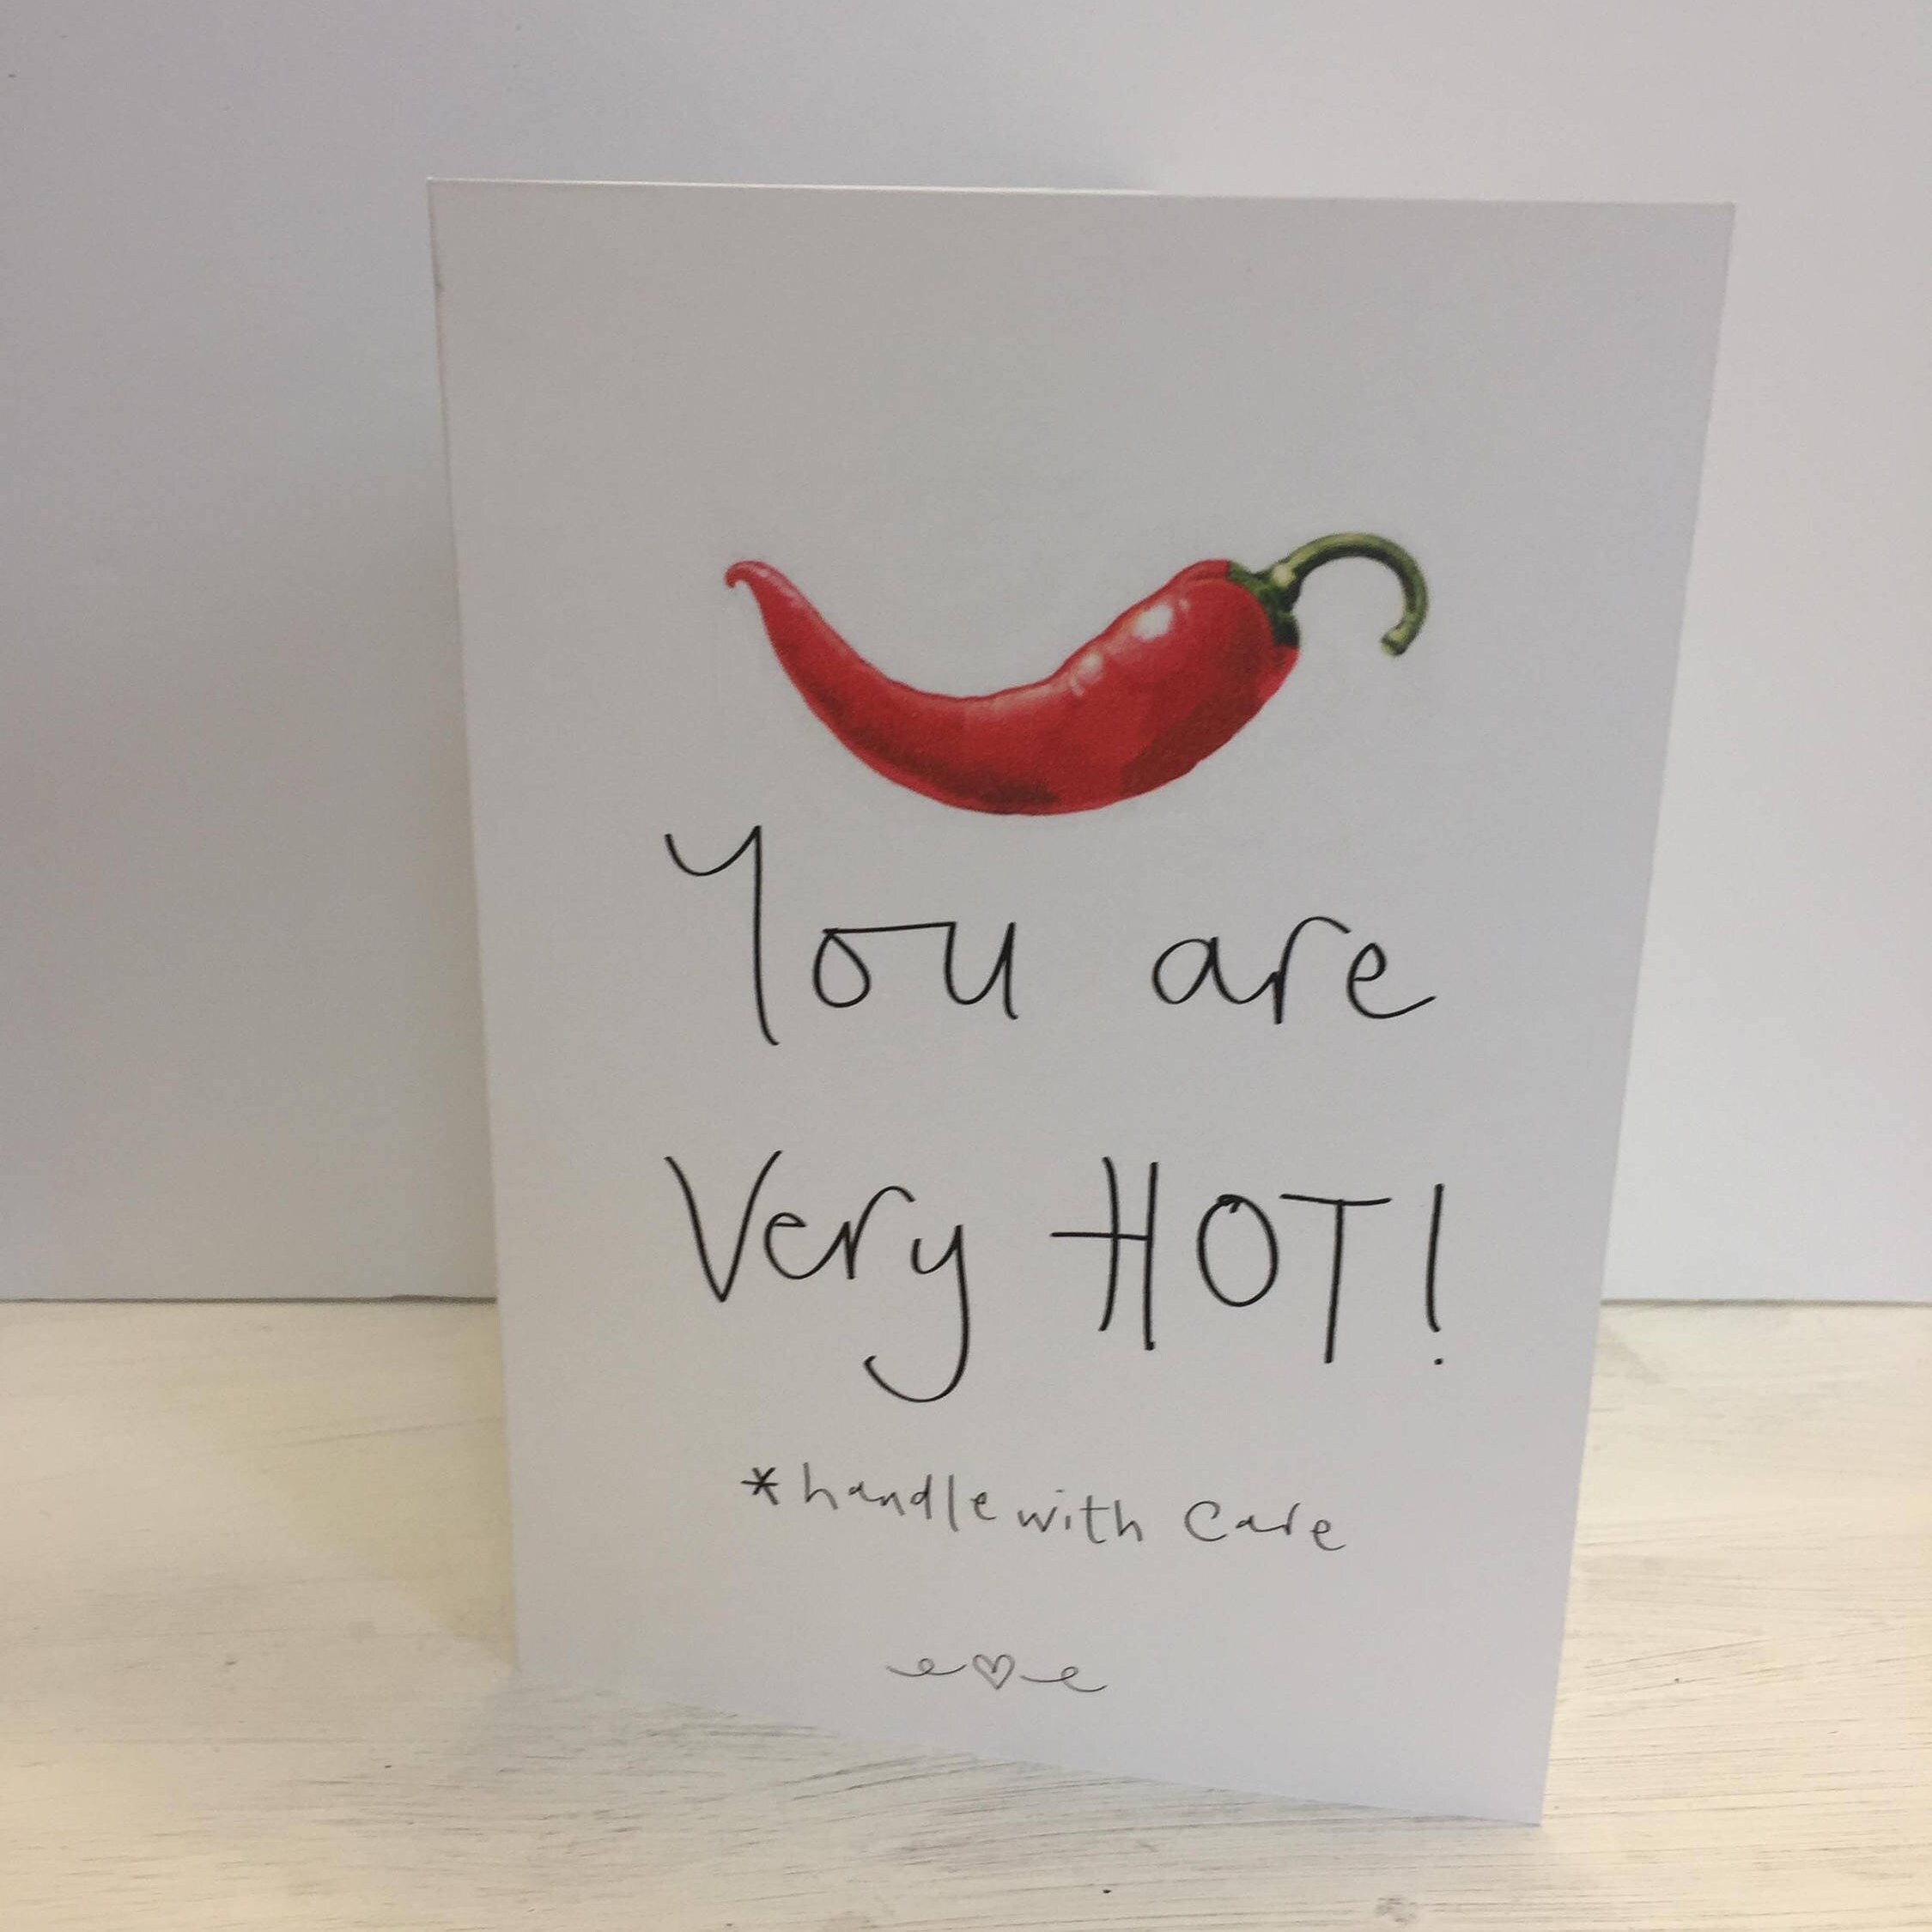 You are
Very HOT!
*handle with care